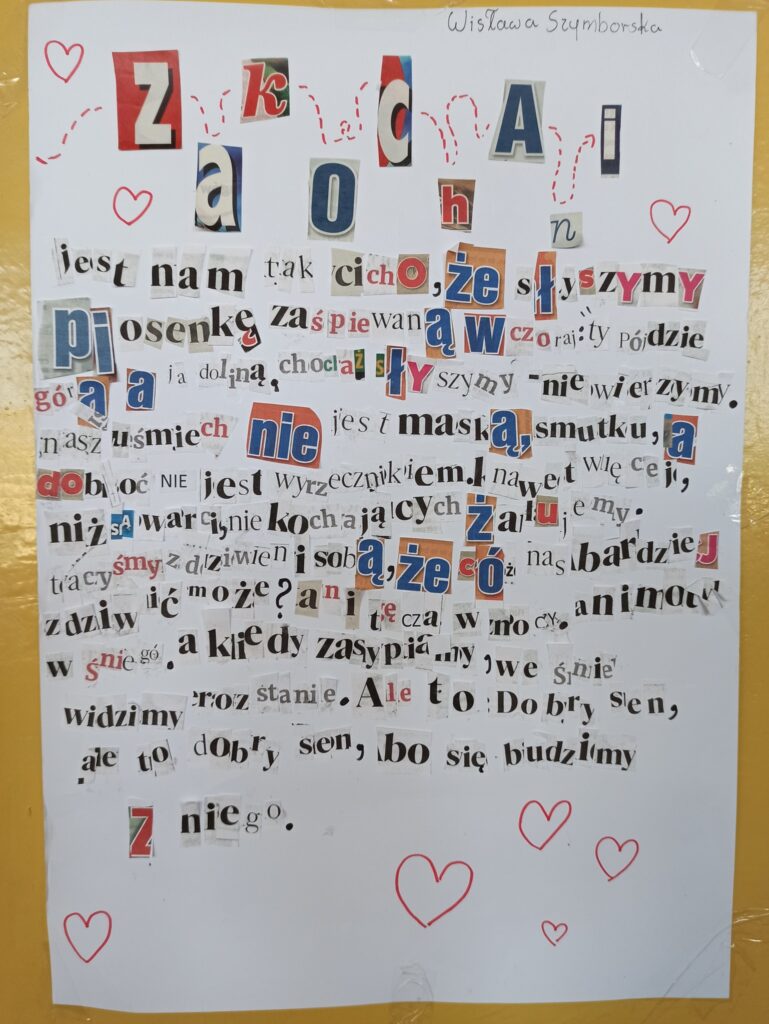 Wisława Szymborska
ZakochAni
jest nam tak cicho, że słyszymy
piosenkę zaśpiewaną wczoraj: "ty pójdzie
górą a ja doliną, chociaż słYszymy - nie wierzymy.
nasz uśmiech nie jest maską, smutku, a
dobroć NIE jest wyrzecznikiem. I nawet więcej,
niż sA warci, nie kochających żałujemy.
tacyśmy zdziwieni sobą, że cóż nas bardzieJ
zdziwić może? ani tęcza w nocy. ani motyl
w śniegó. a kiedy zasypiamy, we śnie
widzimy rozstanie. Ale to Dobry sen,
ale to dobry sen, bo się budzimy
z niego.